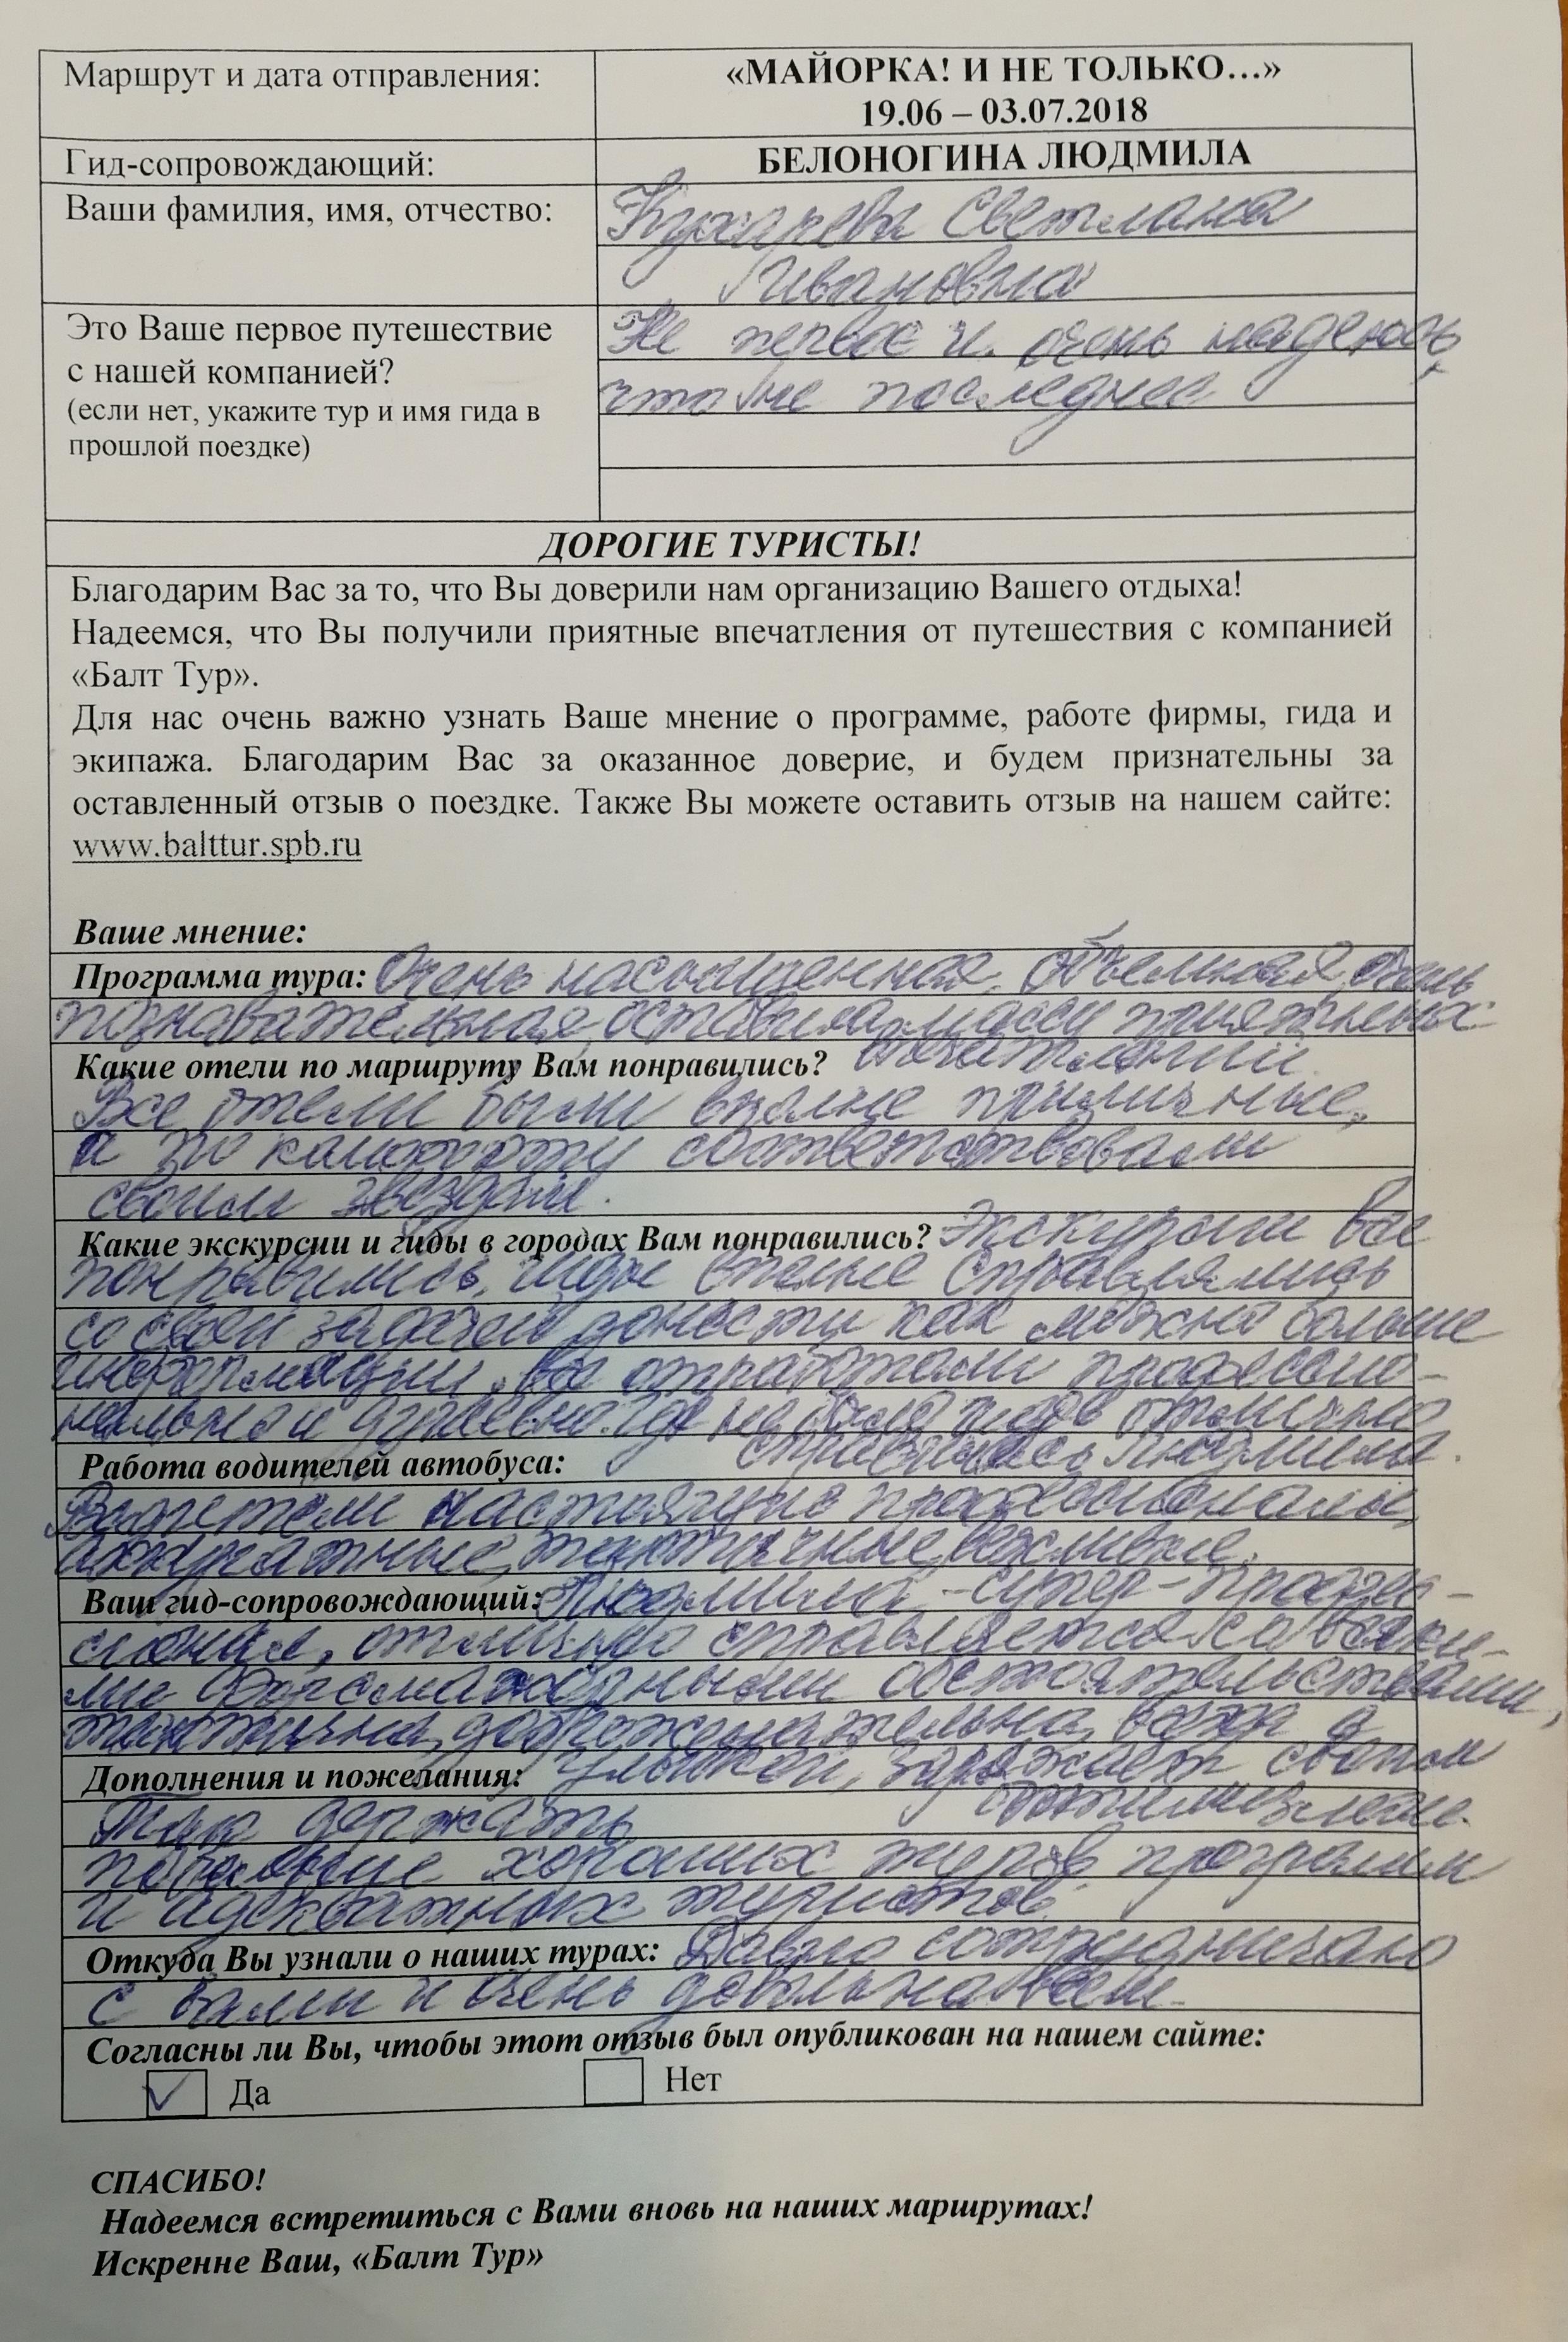 Маршрут и дата отправления:
«МАЙОРКА! И НЕ ТОЛЬКО...»
19.06 – 03.07.2018
Гид-сопровождающий:
БЕЛОНОГИНА ЛЮДМИЛА
Ваши фамилия, имя, отчество:
Кухарева Светлана
Ивановна
Это Ваше первое путешествие
с нашей компанией?
(если нет, укажите тур и имя гида в
прошлой поездке)
Не первое и очень надеюсь,
что не последнее
ДОРОГИЕ ТУРИСТЫ!
Благодарим Вас за то, что Вы доверили нам организацию Вашего отдыха!
Надеемся, что Вы получили приятные впечатления от путешествия с компанией
«Балт Тур».
Для нас очень важно узнать Ваше мнение о программе, работе фирмы, гида и
экипажа. Благодарим Вас за оказанное доверие, и будем признательны за
оставленный отзыв о поездке. Также Вы можете оставить отзыв на нашем сайте:
www.balttur.spb.ru
Ваше мнение:
Программа тура: Очень насыщенная, объемная, очень
познавательная, оставила массу приятных
Какие отели по маршруту Вам понравились? впечатлений.
Все отели были вполне приличные,
а по комфорту соответствовали
своим звездам.
Какие экскурсии и гиды в городах Вам понравились? Экскурсии все
понравились, гиды вполне справлялись
со своей задачей донести как можно больше
информации, все отработали професси-
нально и душевно. Где не было гидов отлично
Работа водителей автобуса: справлялась Людмила.
Водители настоящие профессионалы,
аккуратные, тактичные, вежливые.
Ваш гид-сопровождающий: Людмила - супер-профес-
сионал, отлично справляется со всяки-
ми форсмажорными обстоятельствами,
тактична, доброжелательна, всегда с
Дополнения и пожелания: улыбкой, заряжает своим
Так держать оптимизмом.
побольше хороших туров, программ
и адекватных туристов.
Откуда Вы узнали о наших турах: Давно сотрудничаю
с вами и очень довольна всем.
Согласны ли Вы, чтобы этот отзыв был опубликован на нашем сайте:
Да Нет
СПАСИБО!
Надеемся встретиться с Вами вновь на наших маршрутах!
Искренне Ваш, «Балт Тур»